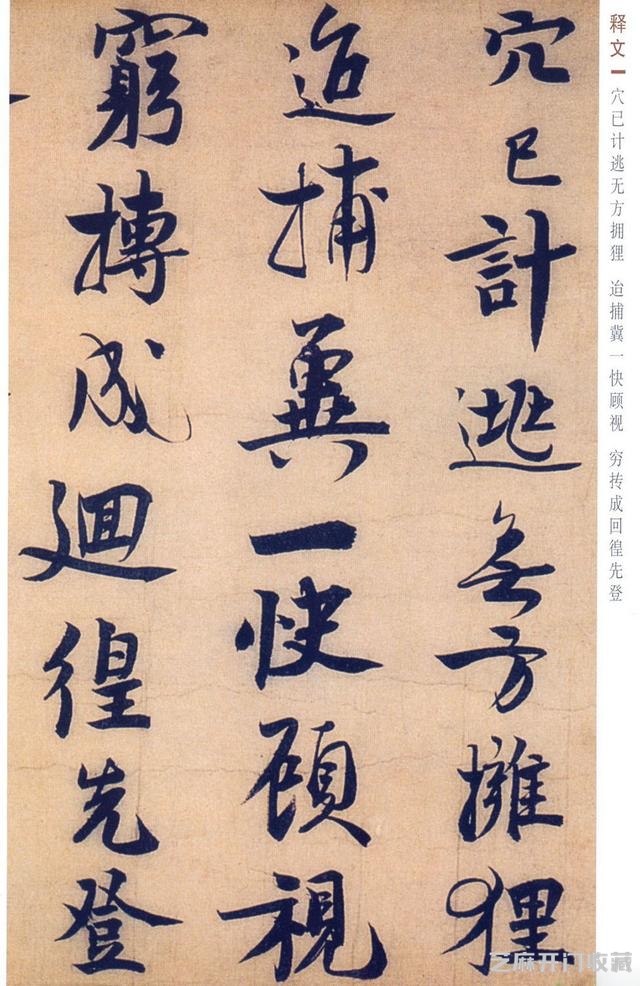 穴已計逃無方擁狸
迨捕冀一快顧視
窮摶成迴徨先登
释文一 穴已计逃无方拥狸 迨捕冀一快顾视 穷抟成回徨先登
芝麻开门收藏